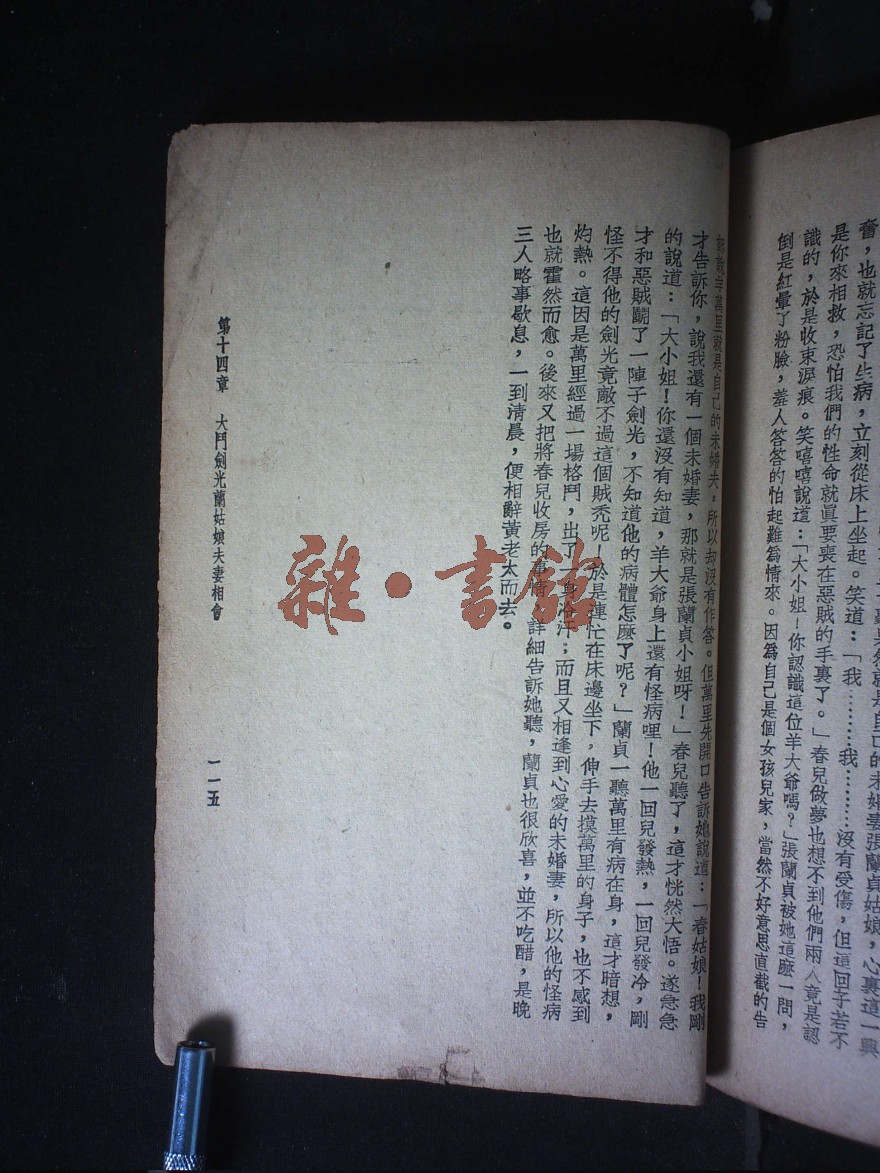 奮，也就忘記了生病，立刻從床上坐起。笑道：「我…………我…………沒有受傷，但這回子若不
是你來相救，恐怕我們的性命就眞要喪在惡賊的手裏了。」春兒做夢也想不到他們兩人竟是認
識的，於是收束淚痕。笑嘻嘻說道：「大小姐！你認識這位羊大爺嗎？」張蘭貞被她這麼一問，
倒是紅暈了粉臉，羞人答答的怕起難爲情來。因爲自己是個女孩兒家，當然不好意思直截的告
訴說羊萬里就是自己的未婚夫，所以却沒有作答。但萬里先開口告訴她說道：「春姑娘！我剛
才告訴你，說我還有一個未婚妻，那就是張蘭貞小姐呀！」春兒聽了，這才恍然大悟。遂急急
的說道：「大小姐！你還沒有知道，羊大爺身上還有怪病哩！他一回兒發熱，一回兒發冷，剛
才和惡賊鬬了一陣子劍光，不知道他的病體怎麼了呢？」蘭貞一聽萬里有病在身，這才暗想，
怪不得他的劍光竟敵不過這個賊禿呢！於是連忙在床邊坐下，伸手去摸萬里的身子，也不感到
灼熱。這因是萬里經過一場格鬥，出了一身冷汗；而且又相逢到心愛的未婚妻，所以他的怪病
也就霍然而愈。後來又把將春兒收房的事情，詳細告訴她聽，蘭貞也很欣喜，並不吃醋，是晚
三人略事歇息，一到清晨，便相辭黃老太而去。
第十四章　大鬥劍光蘭姑娘夫妻相會
一一五
雜·書館